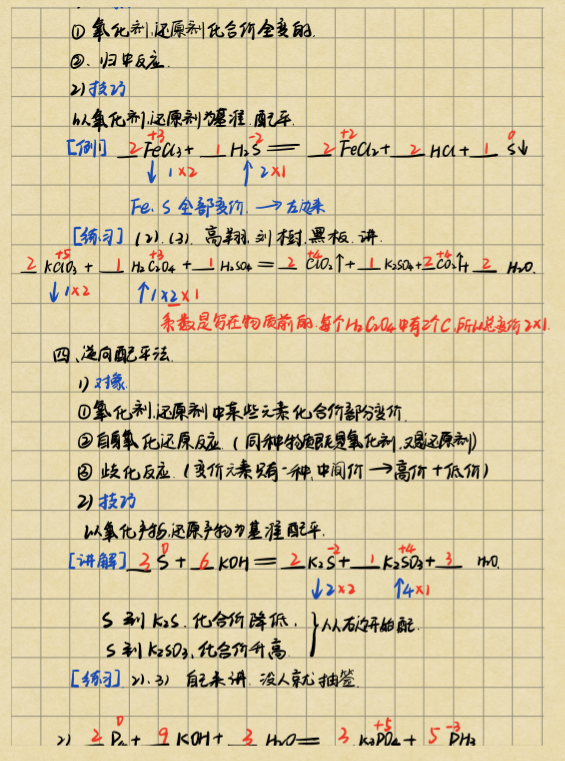 ① 氧化剂,还原剂化合价全变的.
②、归中反应.
2) 技巧
以氧化剂,还原剂为基准,配平.
[例1] 2 FeCl₃ + 1 H₂S == 2 FeCl₂ + 2 HCl + 1 S↓
+3 -2 +2 0
↓1×2 ↑2×1
Fe、S 全部变价. → 左边来
[练习] (2)、(3). 高翔,刘树,黑板,讲.
+5 +3 +4 +4
2 KClO₃ + 1 H₂C₂O₄ + 1 H₂SO₄ = 2 ClO₂↑ + 1 K₂SO₄ + 2 CO₂↑ + 2 H₂O.
↓1×2 ↑1×2×1
系数是写在物质前的,每个H₂C₂O₄中有2个C,所以总变价2×1.
四、逆向配平法.
1) 对象.
①氧化剂,还原剂中某些元素化合价部分变价.
②自身氧化还原反应.(同种物质既是氧化剂,又是还原剂)
③ 歧化反应.(变价元素只有一种,中间价→高价+低价)
2) 技巧
以氧化产物,还原产物为基准配平.
[讲解] 3 S + 6 KOH == 2 K₂S + 1 K₂SO₃ + 3 H₂O.
0 -2 +4
↓2×2 ↑4×1
S 到 K₂S. 化合价降低.
S 到 K₂SO₃,化合价升高.
}从右边开始配.
[练习] 2).3) 自己来讲,没人就抽签.
0 +5 -3
2) 2 P₄ + 9 KOH + 3 H₂O == 3 K₃PO₄ + 5 PH₃